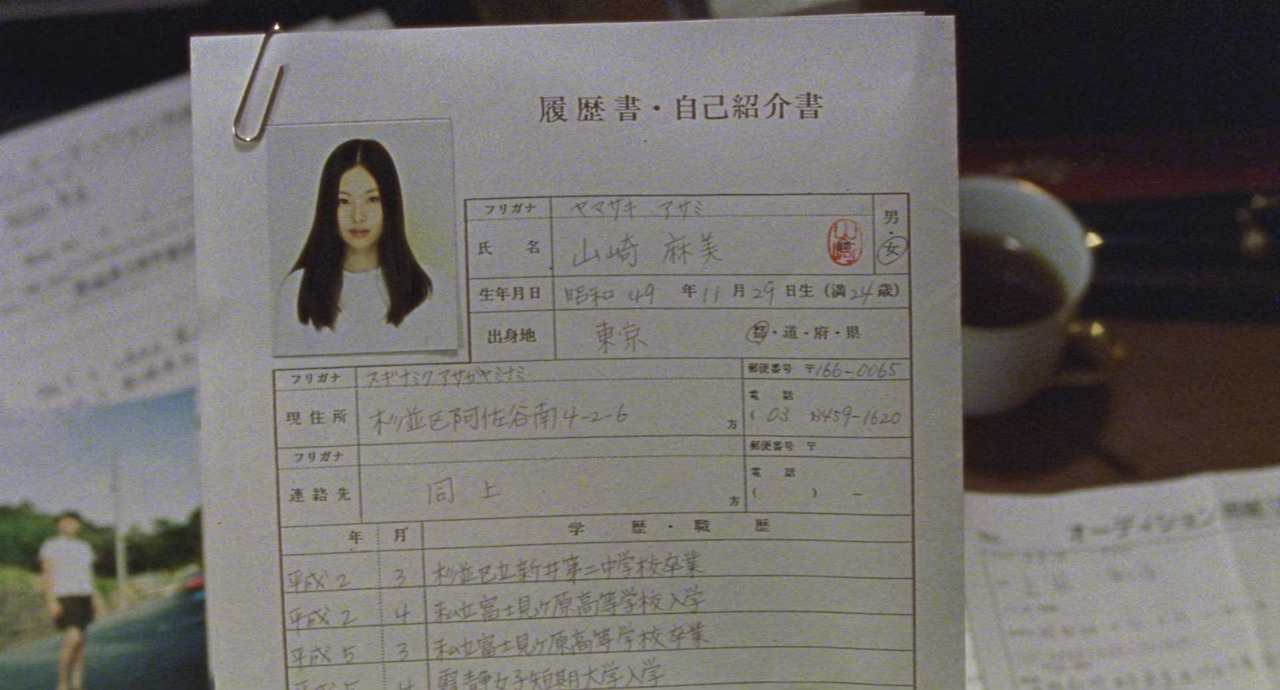 履歴書・自己紹介書
フリガナ ヤマザキ アサミ
氏名 山崎 麻美 山崎 男・女
生年月日 昭和 49 年 11 月 29 日生 (満 24 歳)
出身地 東京 都・道・府・県
フリガナ スギナミク アサガヤミナミ 郵便番号 〒166-0065
現住所 杉並区阿佐谷南4-2-6 方 電話 ( 03 )3459-1620
フリガナ 郵便番号 〒
連絡先 同上 方 電話 ( ) -
年 月 学歴・職歴
平成 2 3 杉並区立新井第二中学校卒業
平成 2 4 私立富士見ヶ原高等学校入学
平成 5 3 私立富士見ヶ原高等学校卒業
女子短期大学入学
オーディション